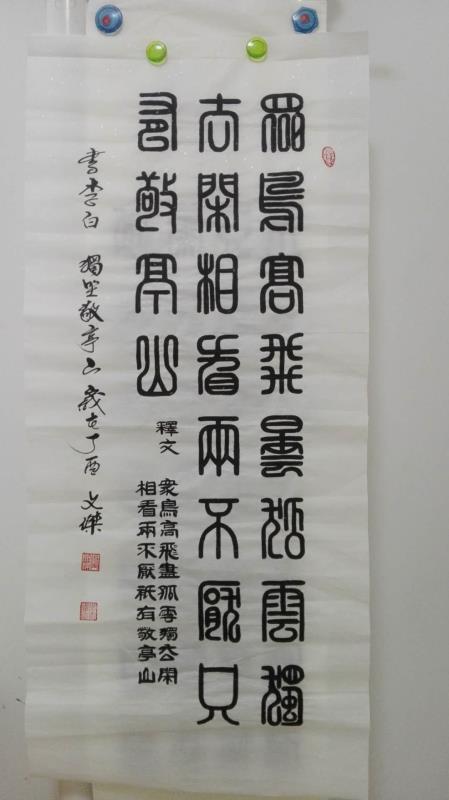 眾鳥高飛盡孤雲獨
去閑相看兩不厭只
有敬亭山
釋文
衆鳥高飛盡孤雲獨去閑
相看兩不厭祇有敬亭山
書李白獨坐敬亭山歲在丁酉文傑